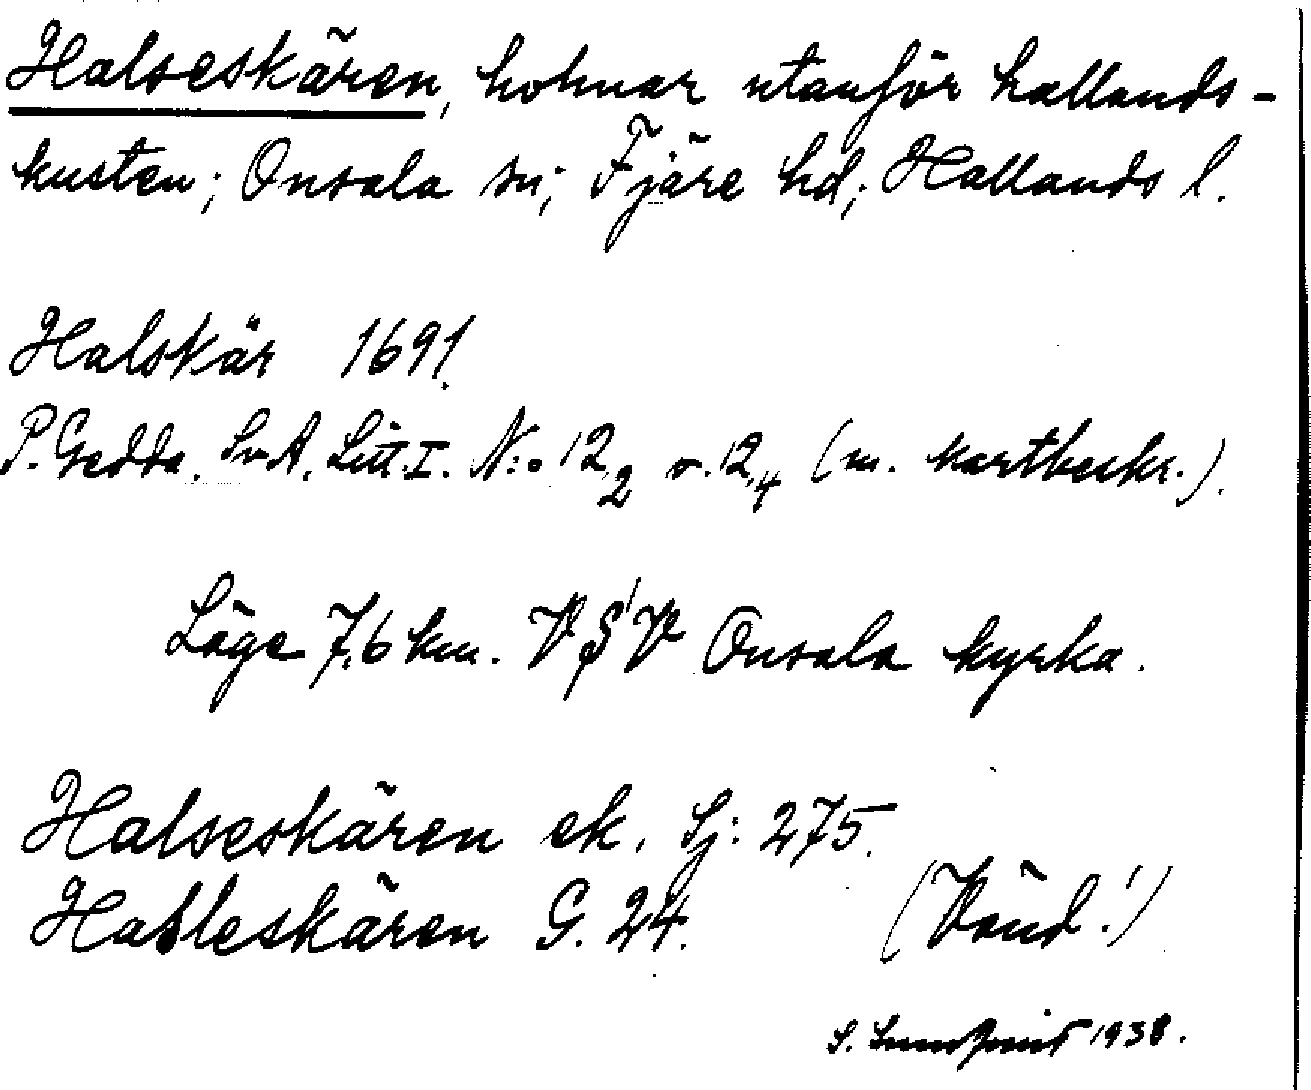 Halseskären, holmar utanför hallands-
kusten; Onsala sn; Fjäre hd; Hallands l.
Halskär 1691.
P. Gedda. Sv A. Litt. I. N:o 12,2 o. 12,4 (m. kartbeskr.).
Läge 7,6 km. VS'V Onsala kyrka.
Halseskären ek. Sj: 275.
Hasleskären G. 24. (Vänd!)
S. 1938.